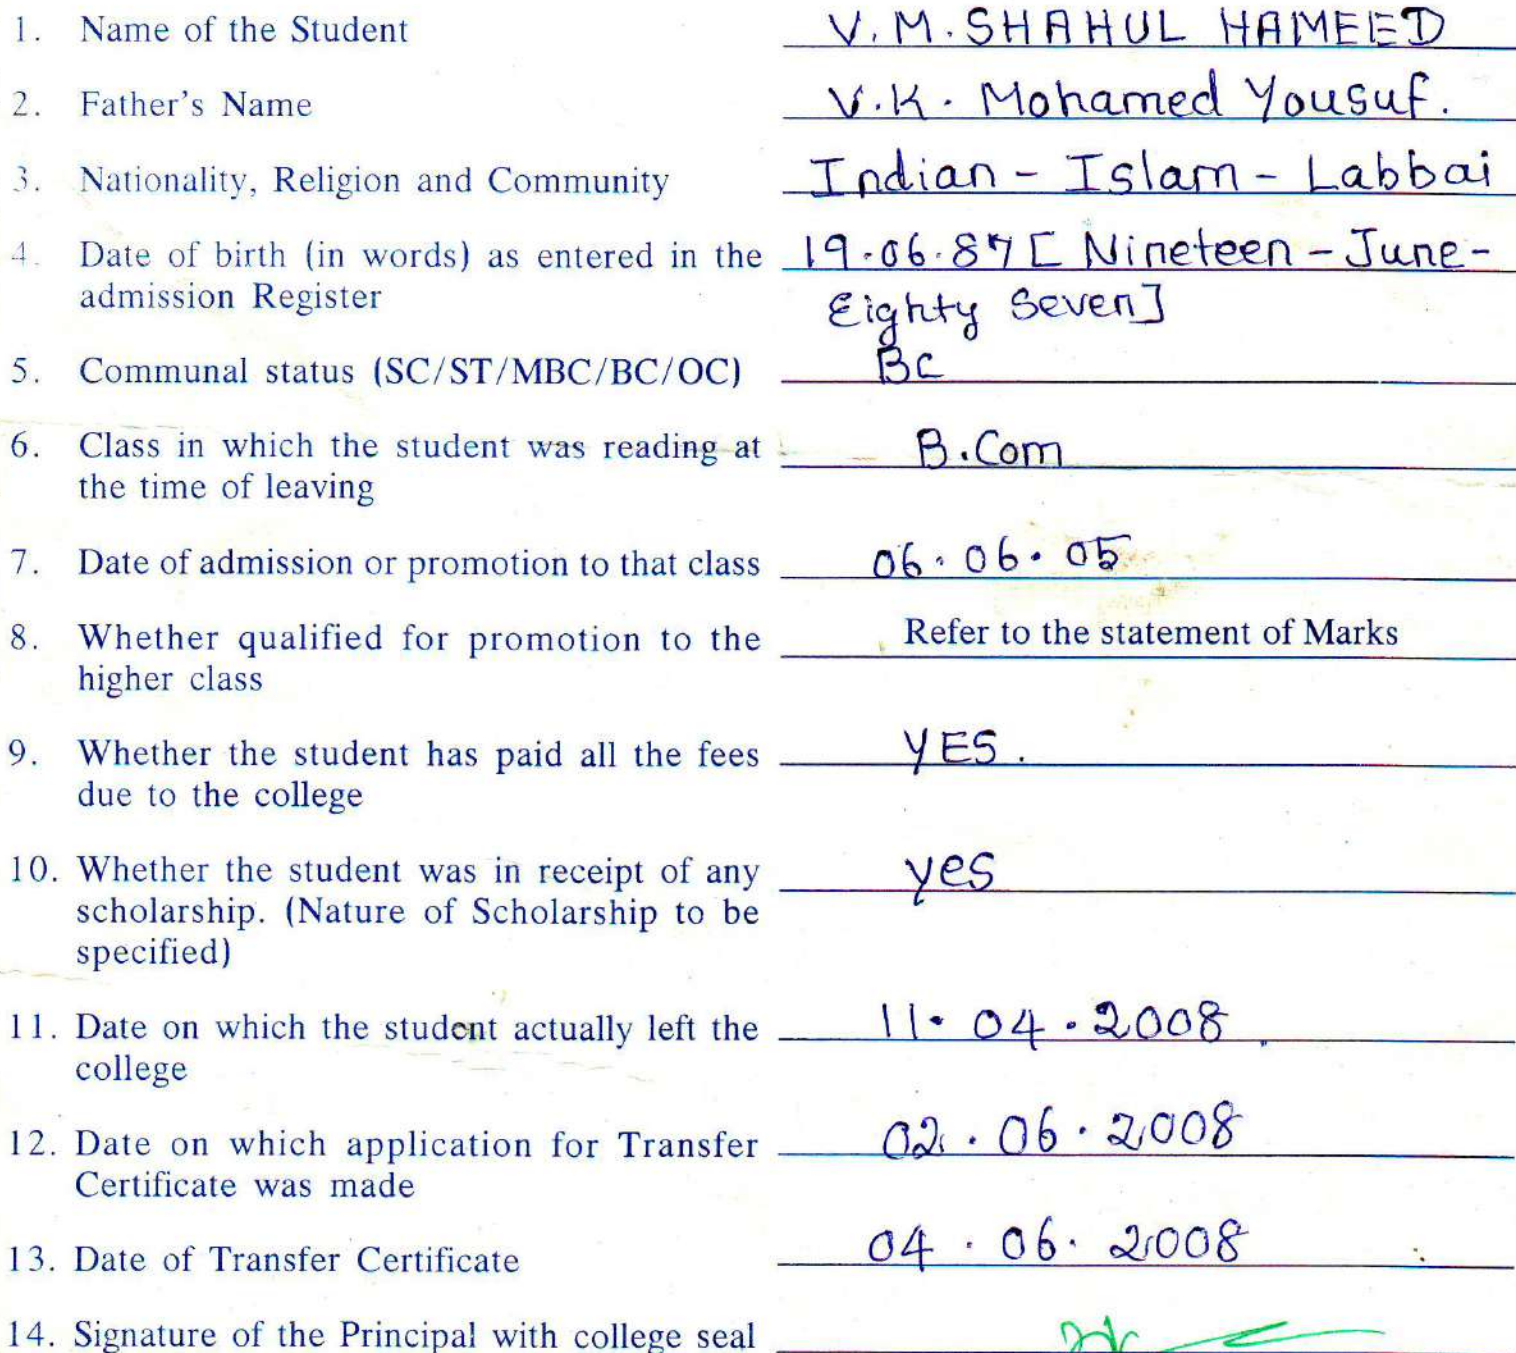 1. Name of the Student V.M. SHAHUL HAMEED
2. Father's Name V.K. Mohamed Yousuf.
3. Nationality, Religion and Community Indian - Islam - Labbai
4. Date of birth (in words) as entered in the 19.06.87 [ Nineteen - June -
admission Register Eighty Seven]
5. Communal status (SC/ST/MBC/BC/OC) BC
6. Class in which the student was reading at B.Com
the time of leaving
7. Date of admission or promotion to that class 06.06.05
8. Whether qualified for promotion to the Refer to the statement of Marks
higher class
9. Whether the student has paid all the fees YES.
due to the college
10. Whether the student was in receipt of any yes
scholarship. (Nature of Scholarship to be
specified)
11. Date on which the student actually left the 11.04.2008
college
12. Date on which application for Transfer 02.06.2008
Certificate was made
13. Date of Transfer Certificate 04.06.2008
14. Signature of the Principal with college seal